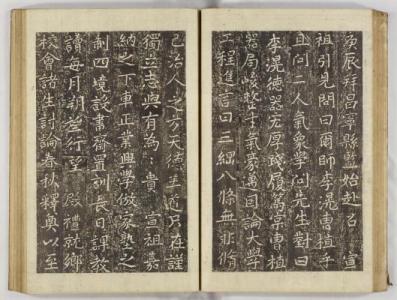 庚辰拜昌寧縣監始赴召 宣
祖引見問曰爾師李滉曺植乎
且問二人氣象學問先生對曰
李滉德器宏厚踐履篤實曺植
器局峻整才氣豪邁因論大學
工程進言曰三綱八條無非脩
己治人之方天德王道只在謹
獨立志與有為 貴 宣祖嘉
納之下車正業興學倣家塾之
制四境設書齋置訓長日課教
讀每月朔必行望 殿禮就鄉
校會諸生討論春秋釋奠以至